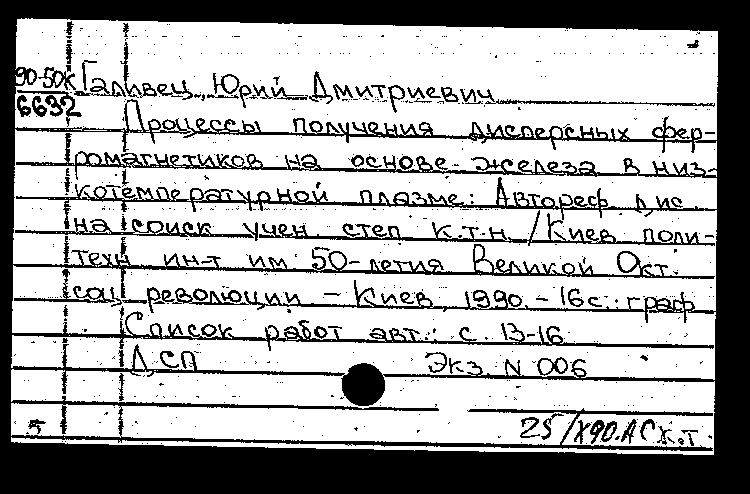 90-50К Галивец, Юрий Дмитриевич
6632
Процессы получения дисперсных фер-
ромагнетиков на основе железа в низ-
котемпературной плазме: Автореф. дис.
на соиск. учен. степ. к.т.н. / Киев. поли-
техн. ин-т им. 50-летия Великой Окт.
соц. революции – Киев, 1990. – 16 с.: граф
Список работ авт.: с. 13-16
ДСП Экз. N 006
5 25/X90. АС ж.т.